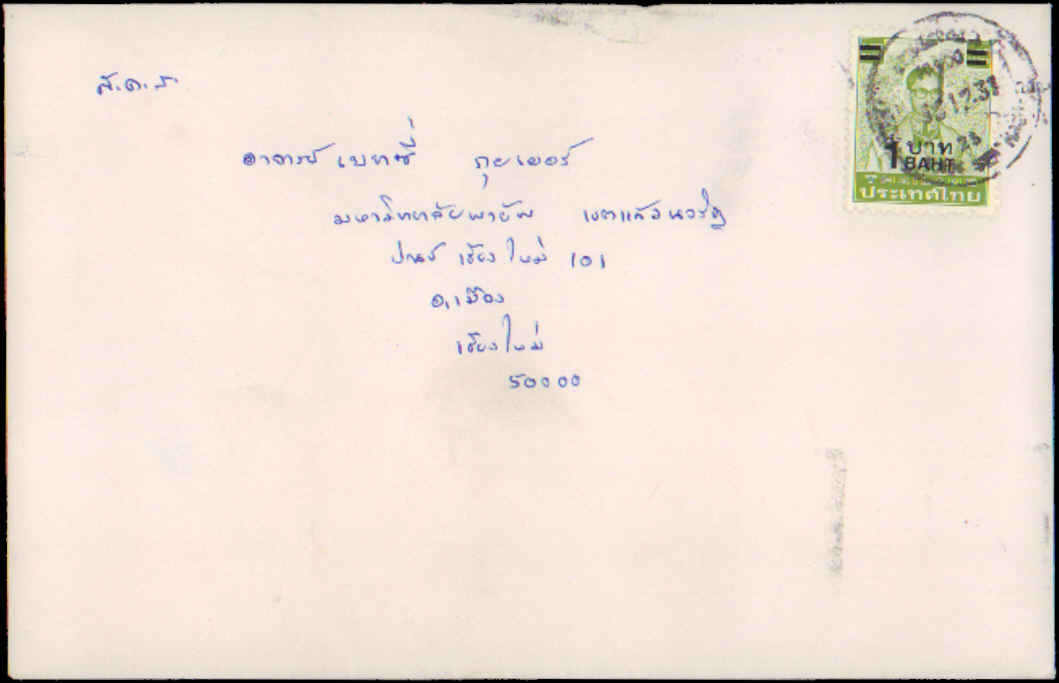 ส.ค.ส.
อาจารย์ เบทซี่ กุยเยอร์
มหาวิทยาลัยพายัพ เขตแก้วนวรัฐ
ปณช เชียงใหม่ 101
อ.เมือง
เชียงใหม่
50000
1 บาท
BAHT
ประเทศไทย